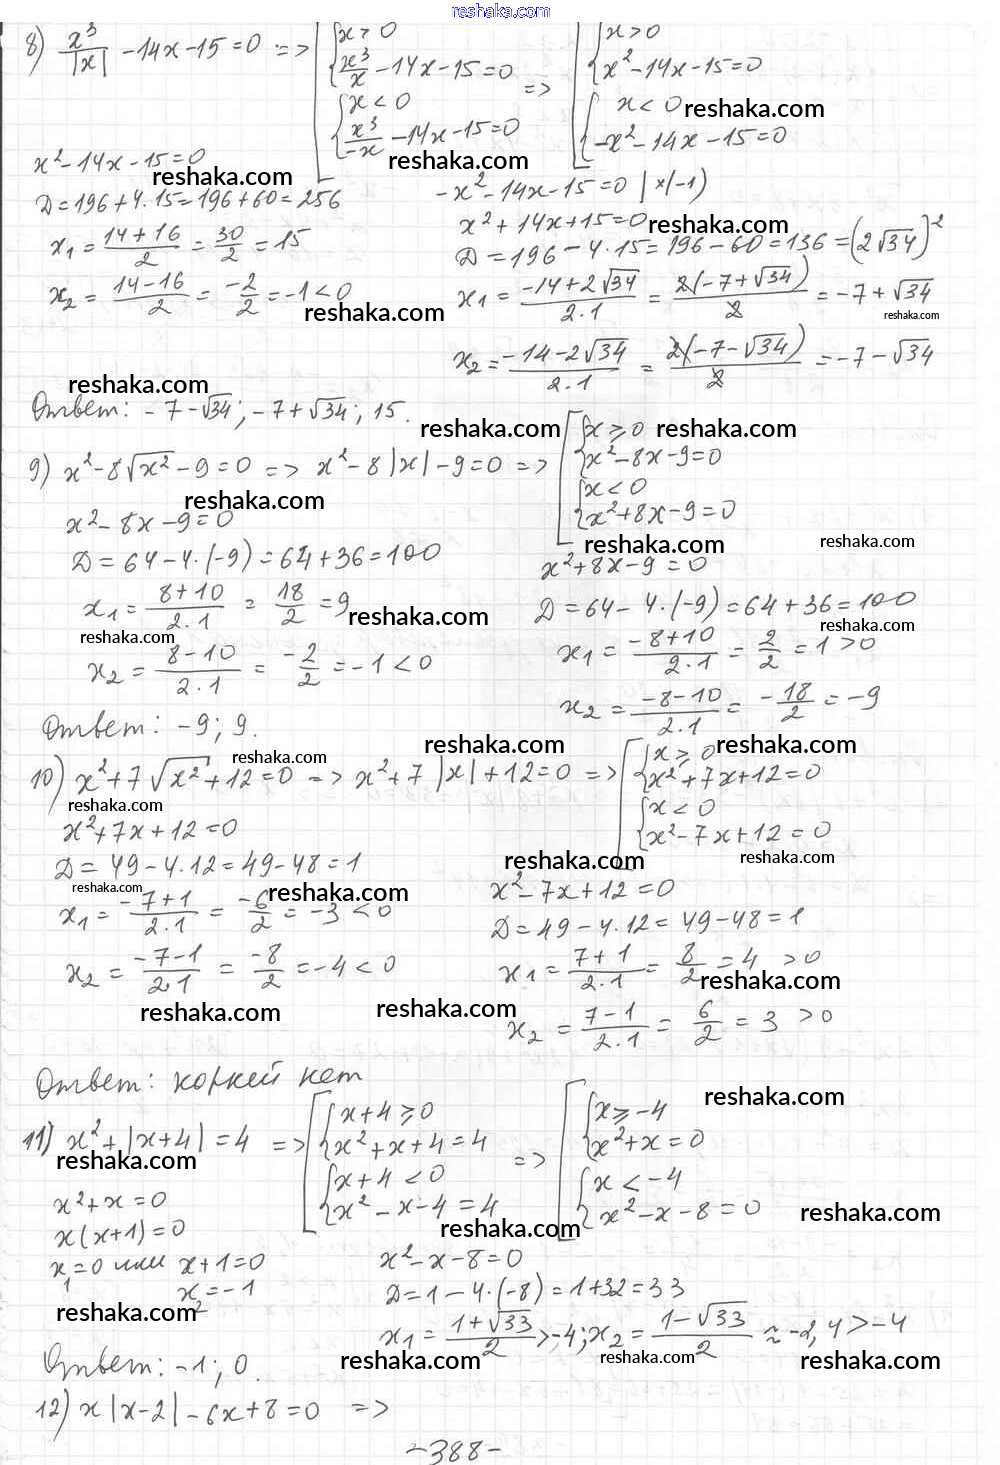 reshaka.com
8) x³/|x| - 14x - 15 = 0 => [ { x > 0 ; x³/x - 14x - 15 = 0 ; { x < 0 ; x³/-x - 14x - 15 = 0 => [ { x > 0 ; x² - 14x - 15 = 0 ; { x < 0 ; -x² - 14x - 15 = 0
reshaka.com
reshaka.com
x² - 14x - 15 = 0
reshaka.com
Д = 196 + 4·15 = 196 + 60 = 256
x₁ = (14+16)/2 = 30/2 = 15
x₂ = (14-16)/2 = -2/2 = -1 < 0
reshaka.com
-x² - 14x - 15 = 0 | ×(-1)
x² + 14x + 15 = 0
reshaka.com
Д = 196 - 4·15 = 196 - 60 = 136 = (2√34)²
x₁ = (-14+2√34)/(2·1) = 2(-7+√34)/2 = -7+√34
reshaka.com
x₂ = (-14-2√34)/(2·1) = 2(-7-√34)/2 = -7-√34
reshaka.com
Ответ: -7-√34; -7+√34; 15.
reshaka.com
reshaka.com
9) x² - 8√x² - 9 = 0 => x² - 8|x| - 9 = 0 => [ { x ⩾ 0 ; x² - 8x - 9 = 0 ; { x < 0 ; x² + 8x - 9 = 0
reshaka.com
reshaka.com
reshaka.com
x² - 8x - 9 = 0
Д = 64 - 4·(-9) = 64 + 36 = 100
x₁ = (8+10)/(2·1) = 18/2 = 9
reshaka.com
reshaka.com
x₂ = (8-10)/(2·1) = -2/2 = -1 < 0
x² + 8x - 9 = 0
Д = 64 - 4·(-9) = 64 + 36 = 100
reshaka.com
x₁ = (-8+10)/(2·1) = 2/2 = 1 > 0
x₂ = (-8-10)/(2·1) = -18/2 = -9
Ответ: -9; 9.
reshaka.com
reshaka.com
reshaka.com
10) x² + 7√x² + 12 = 0 => x² + 7|x| + 12 = 0 => [ { x ⩾ 0 ; x² + 7x + 12 = 0 ; { x < 0 ; x² - 7x + 12 = 0
reshaka.com
reshaka.com
reshaka.com
x² + 7x + 12 = 0
Д = 49 - 4·12 = 49 - 48 = 1
reshaka.com
reshaka.com
x₁ = (-7+1)/(2·1) = -6/2 = -3 < 0
x₂ = (-7-1)/(2·1) = -8/2 = -4 < 0
x² - 7x + 12 = 0
Д = 49 - 4·12 = 49 - 48 = 1
x₁ = (7+1)/(2·1) = 8/2 = 4 > 0
reshaka.com
reshaka.com
reshaka.com
x₂ = (7-1)/(2·1) = 6/2 = 3 > 0
Ответ: корней нет
reshaka.com
11) x² + |x+4| = 4 => [ { x+4 ⩾ 0 ; x² + x + 4 = 4 ; { x+4 < 0 ; x² - x - 4 = 4 => [ { x ⩾ -4 ; x² + x = 0 ; { x < -4 ; x² - x - 8 = 0
reshaka.com
reshaka.com
reshaka.com
x² + x = 0
x(x+1) = 0
x₁ = 0 или x+1 = 0
x₂ = -1
reshaka.com
x² - x - 8 = 0
Д = 1 - 4·(-8) = 1 + 32 = 33
x₁ = (1+√33)/2 > -4; x₂ = (1-√33)/2 ≈ -2,4 > -4
reshaka.com
reshaka.com
reshaka.com
Ответ: -1; 0.
12) x|x-2| - 6x + 8 = 0 =>
-388-